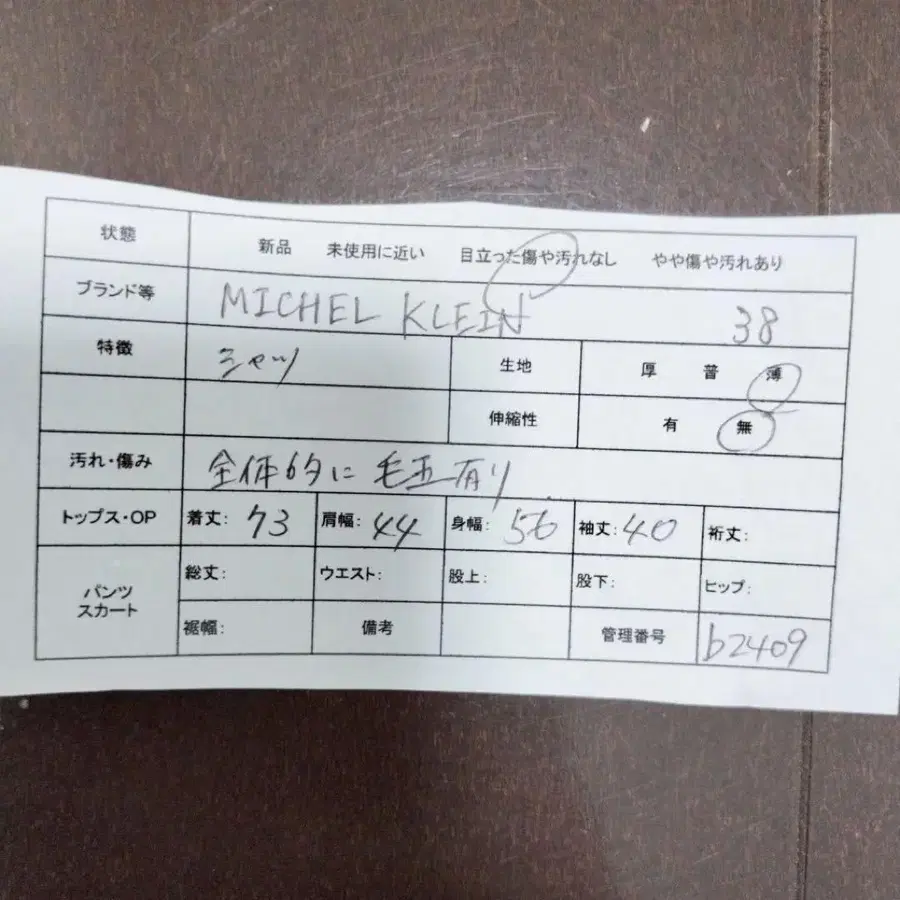 状態 新品 未使用に近い 目立った傷や汚れなし やや傷や汚れあり
ブランド等 MICHEL KLEIN 38
特徴 シャツ 生地 厚 普 薄
伸縮性 有 無
汚れ・傷み 全体的に毛玉有り
トップス・OP 着丈: 73 肩幅: 44 身幅: 56 袖丈: 40 裄丈:
パンツ スカート 総丈: ウエスト: 股上: 股下: ヒップ:
裾幅: 備考 管理番号 b2409